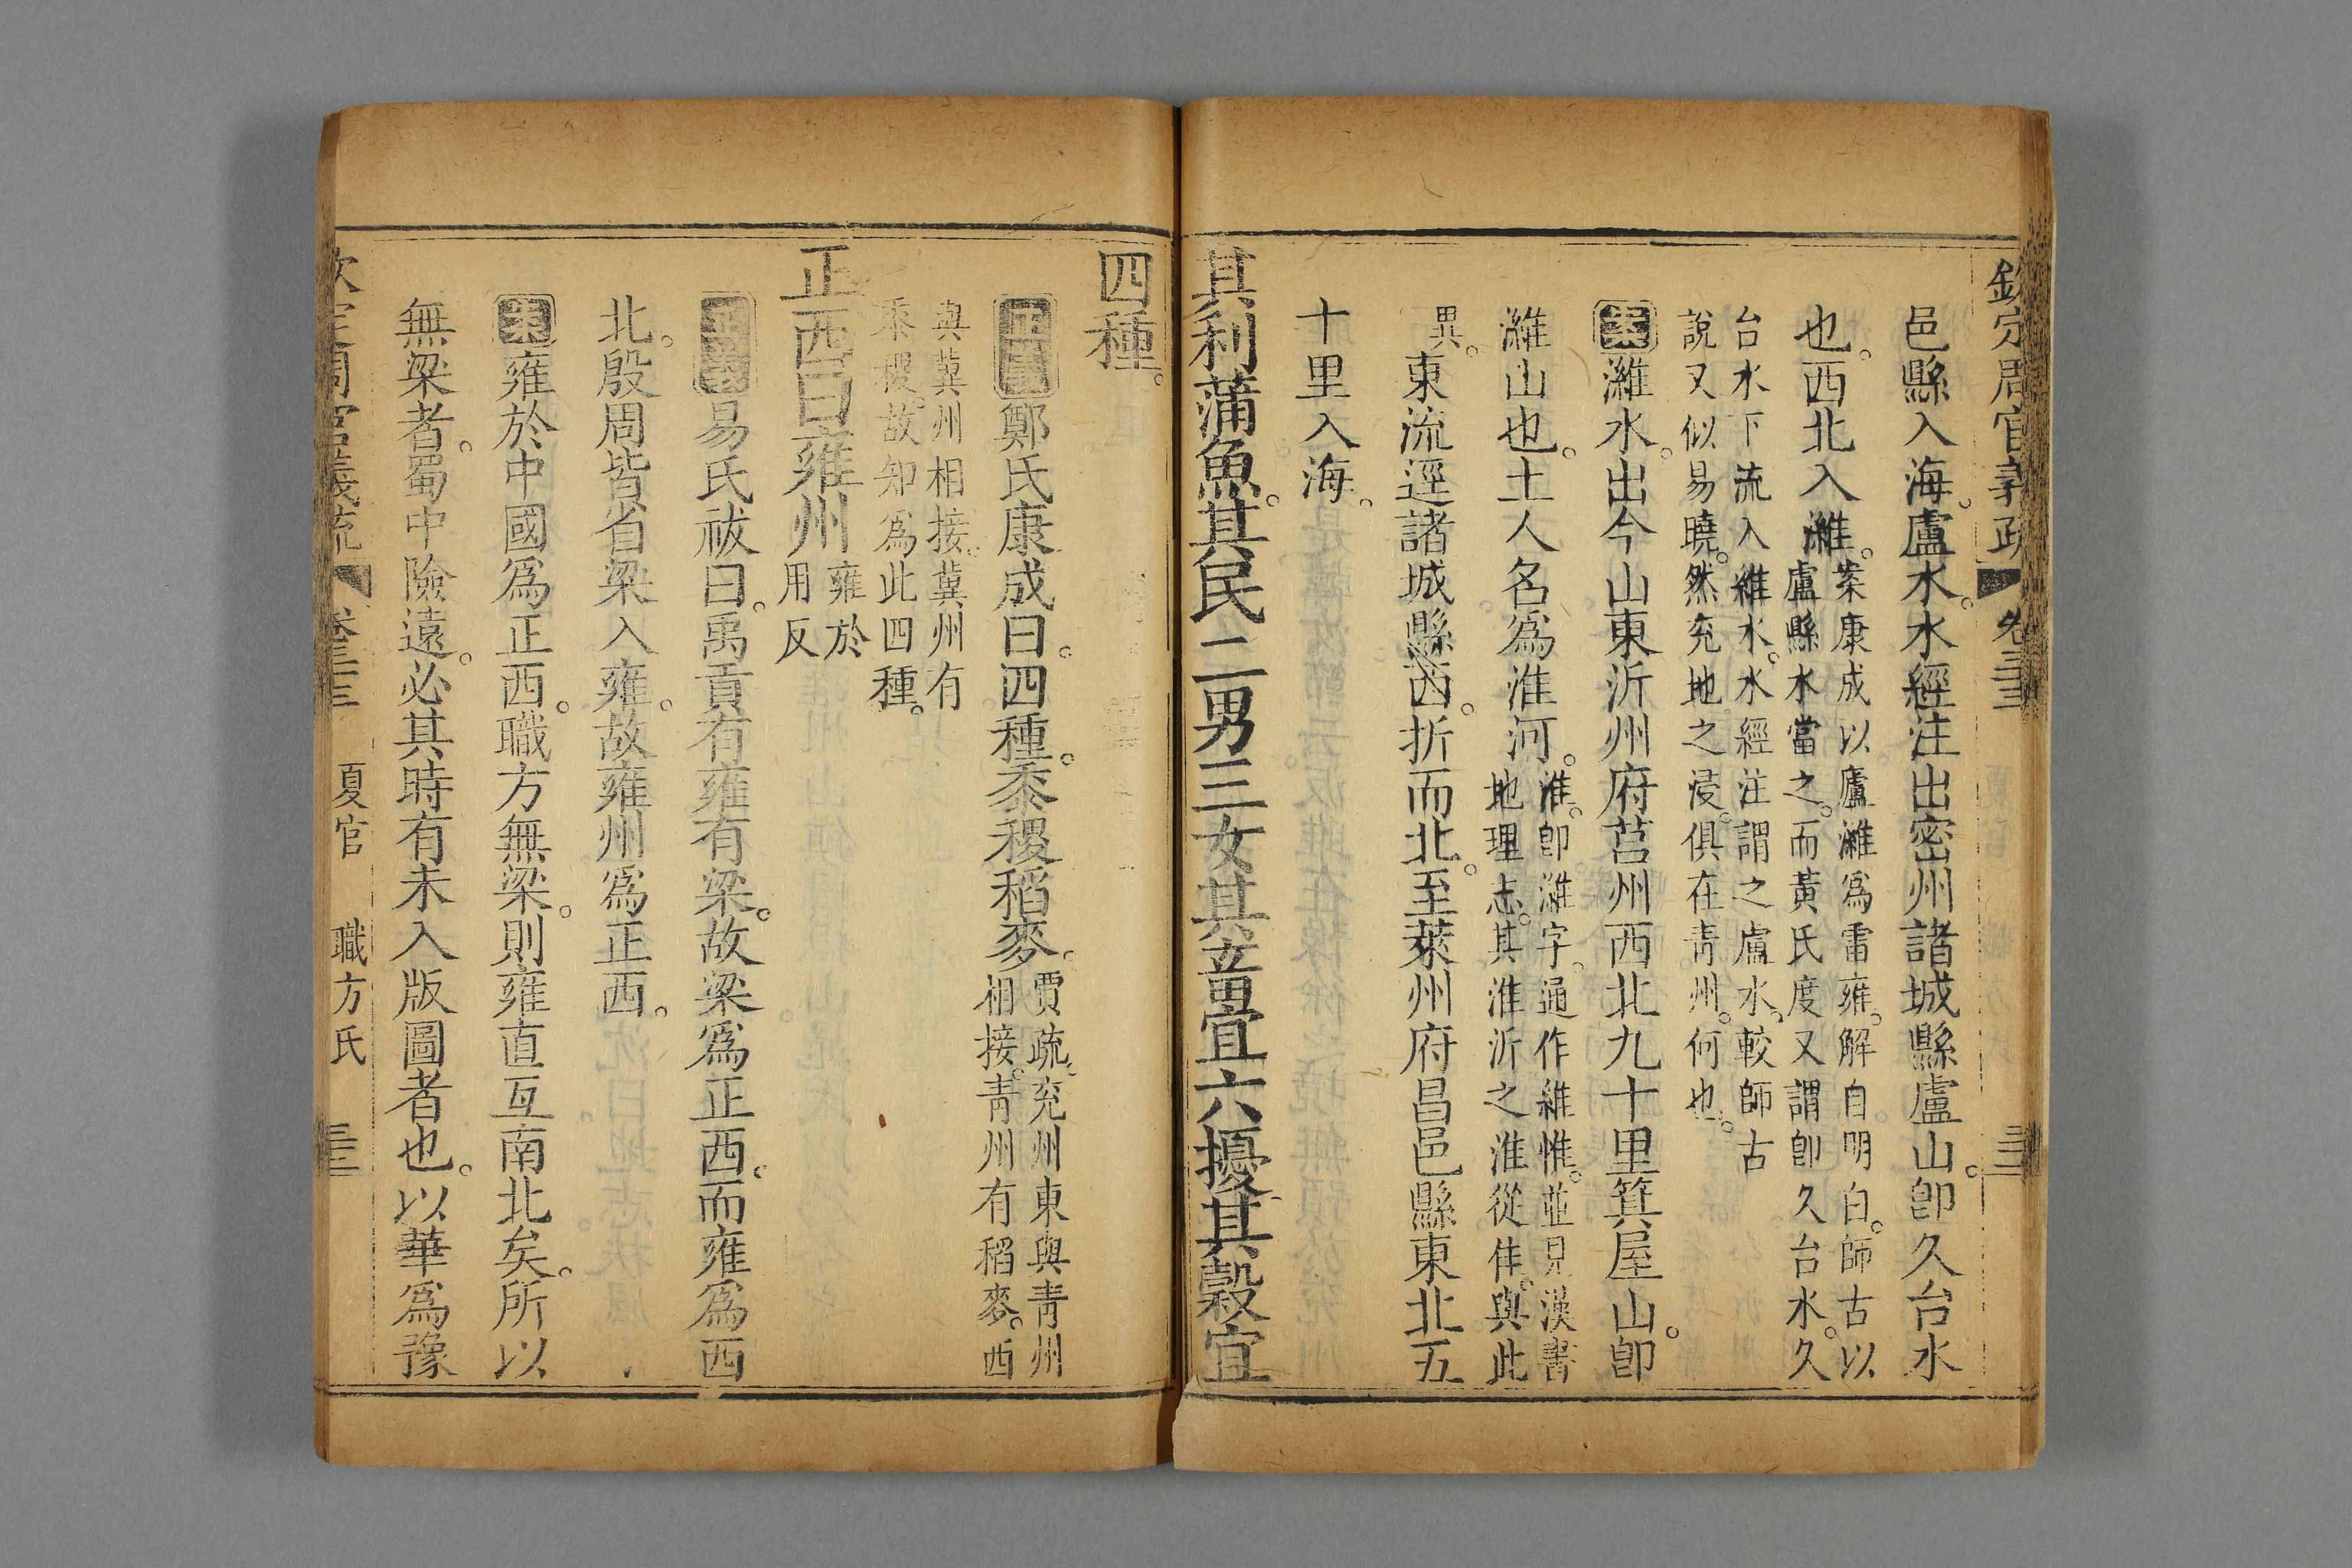 欽定周官義疏 卷三十三
邑縣入海。盧水。水經注出密州諸城縣盧山。卽久台水
也。西北入濰。
案康成以廬濰爲雷雍。解自明白。師古以
盧縣水當之。而黃氏度又謂卽久台水。久
台水下流入維水。水經注謂之盧水。較師古
說又似易曉。然兗地之浸。俱在靑州。何也。
案濰水。出今山東沂州府莒州西北九十里箕屋山。卽
濰山也。土人名爲淮河。
淮。卽濰字。通作維惟。並見漢書
地理志。其淮沂之淮從隹。與此
異。
東流逕諸城縣西。折而北。至萊州府昌邑縣東北五
十里入海。
其利蒲魚。其民二男三女其畜宜六擾其穀宜
四種。
正義鄭氏康成曰。四種。黍稷稻麥。
賈疏。兗州東與靑州
相接。靑州有稻麥。西
與冀州相接。冀州有
黍稷。故知爲此四種。
正西曰雍州
雍於
用反
正義易氏祓曰。禹貢有雍有梁。故梁爲正西。而雍爲西
北。殷周皆省梁入雍。故雍州爲正西。
案雍於中國爲正西。職方無梁。則雍直亙南北矣。所以
無梁者。蜀中險遠。必其時有未入版圖者也。以華爲豫
欽定周官義疏 卷三十三 夏官 職方氏